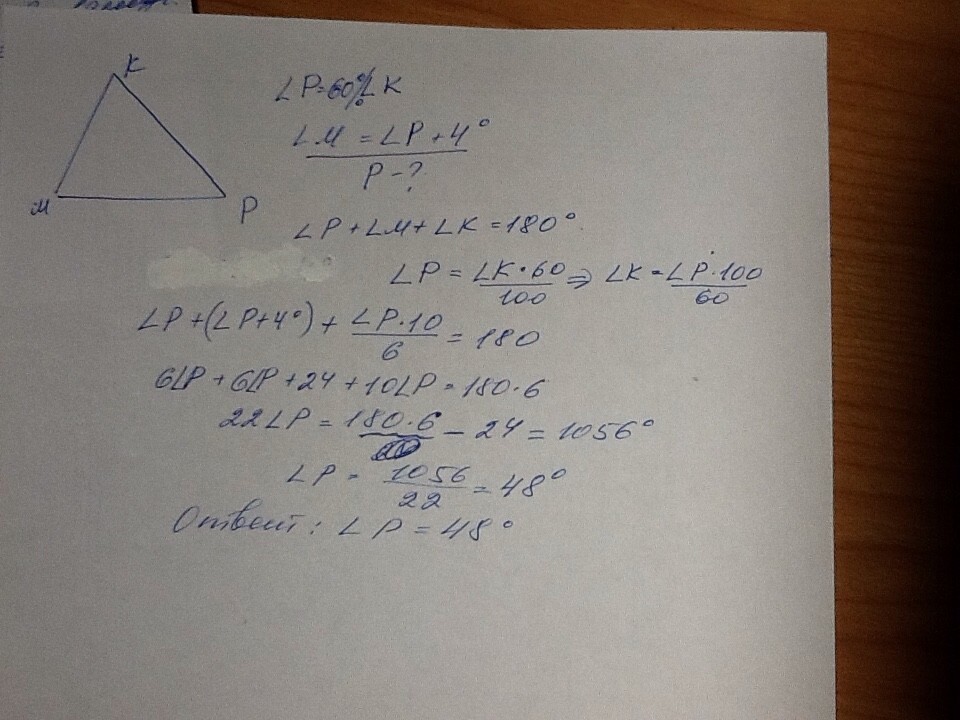 K
M
P
∠P=60%∠K
∠M = ∠P+4°
P-?
∠P+∠M+∠K=180°
∠P = ∠K·60/100 ⇒ ∠K = ∠P·100/60
∠P+(∠P+4°)+ ∠P·10/6 = 180
6∠P+6∠P+24+10∠P=180·6
22∠P = 180·6 - 24 = 1056°
∠P = 1056/22 = 48°
Ответ: ∠P=48°